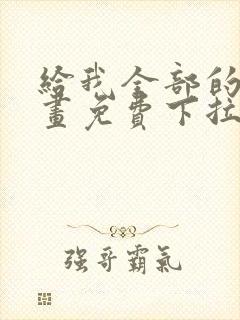 給我全部的
畫免費下拉
強哥霸氣